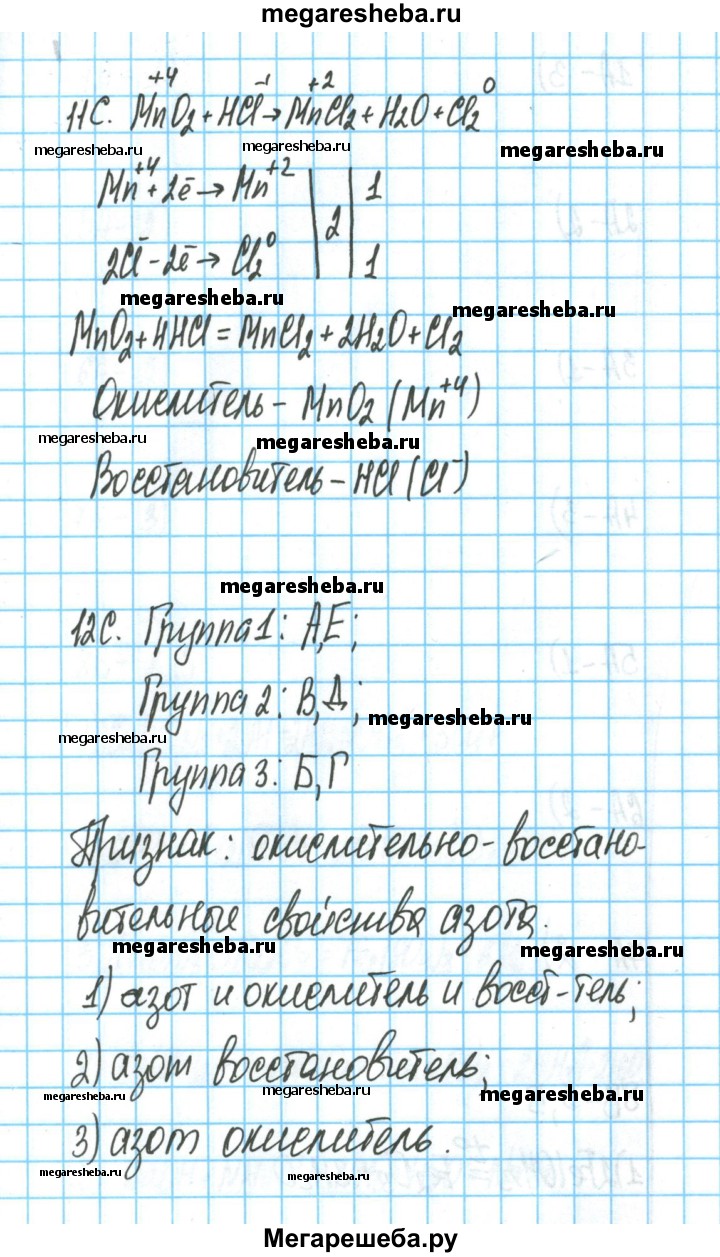 megaresheba.ru
11С. Mn⁺⁴O₂ + HCl⁻¹ → Mn⁺²Cl₂ + H₂O + Cl₂⁰
megaresheba.ru megaresheba.ru megaresheba.ru
Mn⁺⁴ + 2ē → Mn⁺² | | 1
2
2Cl⁻ - 2ē → Cl₂⁰ | | 1
megaresheba.ru megaresheba.ru
MnO₂ + 4HCl = MnCl₂ + 2H₂O + Cl₂
Окислитель - MnO₂ (Mn⁺⁴)
megaresheba.ru megaresheba.ru
Восстановитель - HCl (Cl⁻)
megaresheba.ru
12С. Группа 1: А,Е;
Группа 2: В,Д;
megaresheba.ru megaresheba.ru
Группа 3: Б,Г
Признак: окислительно-восстано-
вительные свойства азота.
megaresheba.ru megaresheba.ru
1) азот и окислитель и восст-тель;
2) азот восстановитель;
megaresheba.ru megaresheba.ru megaresheba.ru
3) азот окислитель.
megaresheba.ru megaresheba.ru
Мегарешеба.ру